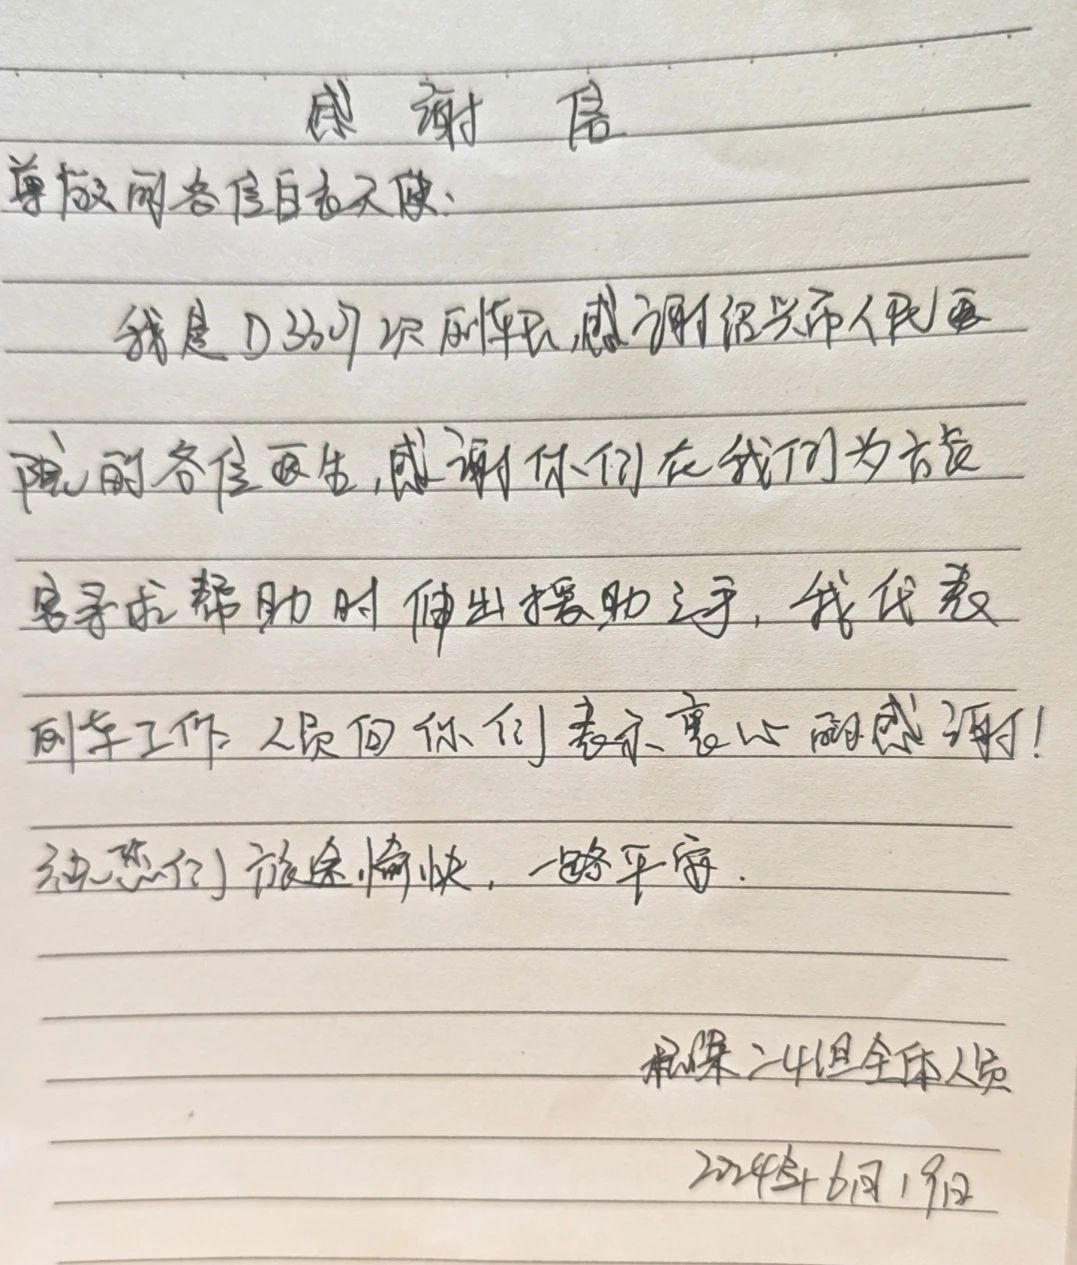 感谢信
尊敬的各位白衣天使:
我是D3307次列车长,感谢绍兴市人民医
院的各位医生,感谢你们在我们为旅
客寻求帮助时伸出援助之手,我代表
列车工作人员向你们表示衷心的感谢!
祝您们旅途愉快,一路平安.
二4组全体人员
2024年6月19日